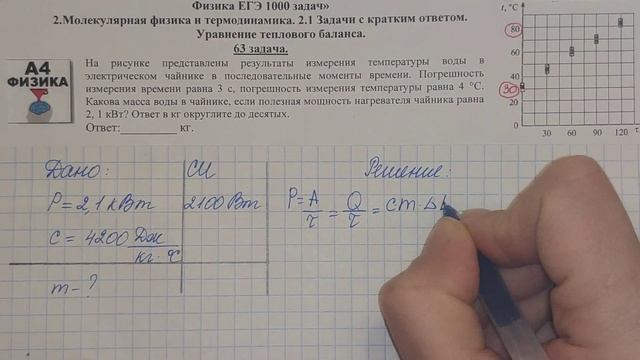 Физика ЕГЭ 1000 задач»
2.Молекулярная физика и термодинамика. 2.1 Задачи с кратким ответом.
Уравнение теплового баланса.
63 задача.
А4
ФИЗИКА
На рисунке представлены результаты измерения температуры воды в
электрическом чайнике в последовательные моменты времени. Погрешность
измерения времени равна 3 с, погрешность измерения температуры равна 4 °C.
Какова масса воды в чайнике, если полезная мощность нагревателя чайника равна
2, 1 кВт? Ответ в кг округлите до десятых.
Ответ:__________ кг.
t, °C
80
60
40
30
20
0
30 60 90 120 τ
Дано:
СИ
Решение:
P = 2,1 кВт
2100 Вт
P = A/τ = Q/τ = cm·Δt
c = 4200 Дж/кг·°C
m - ?